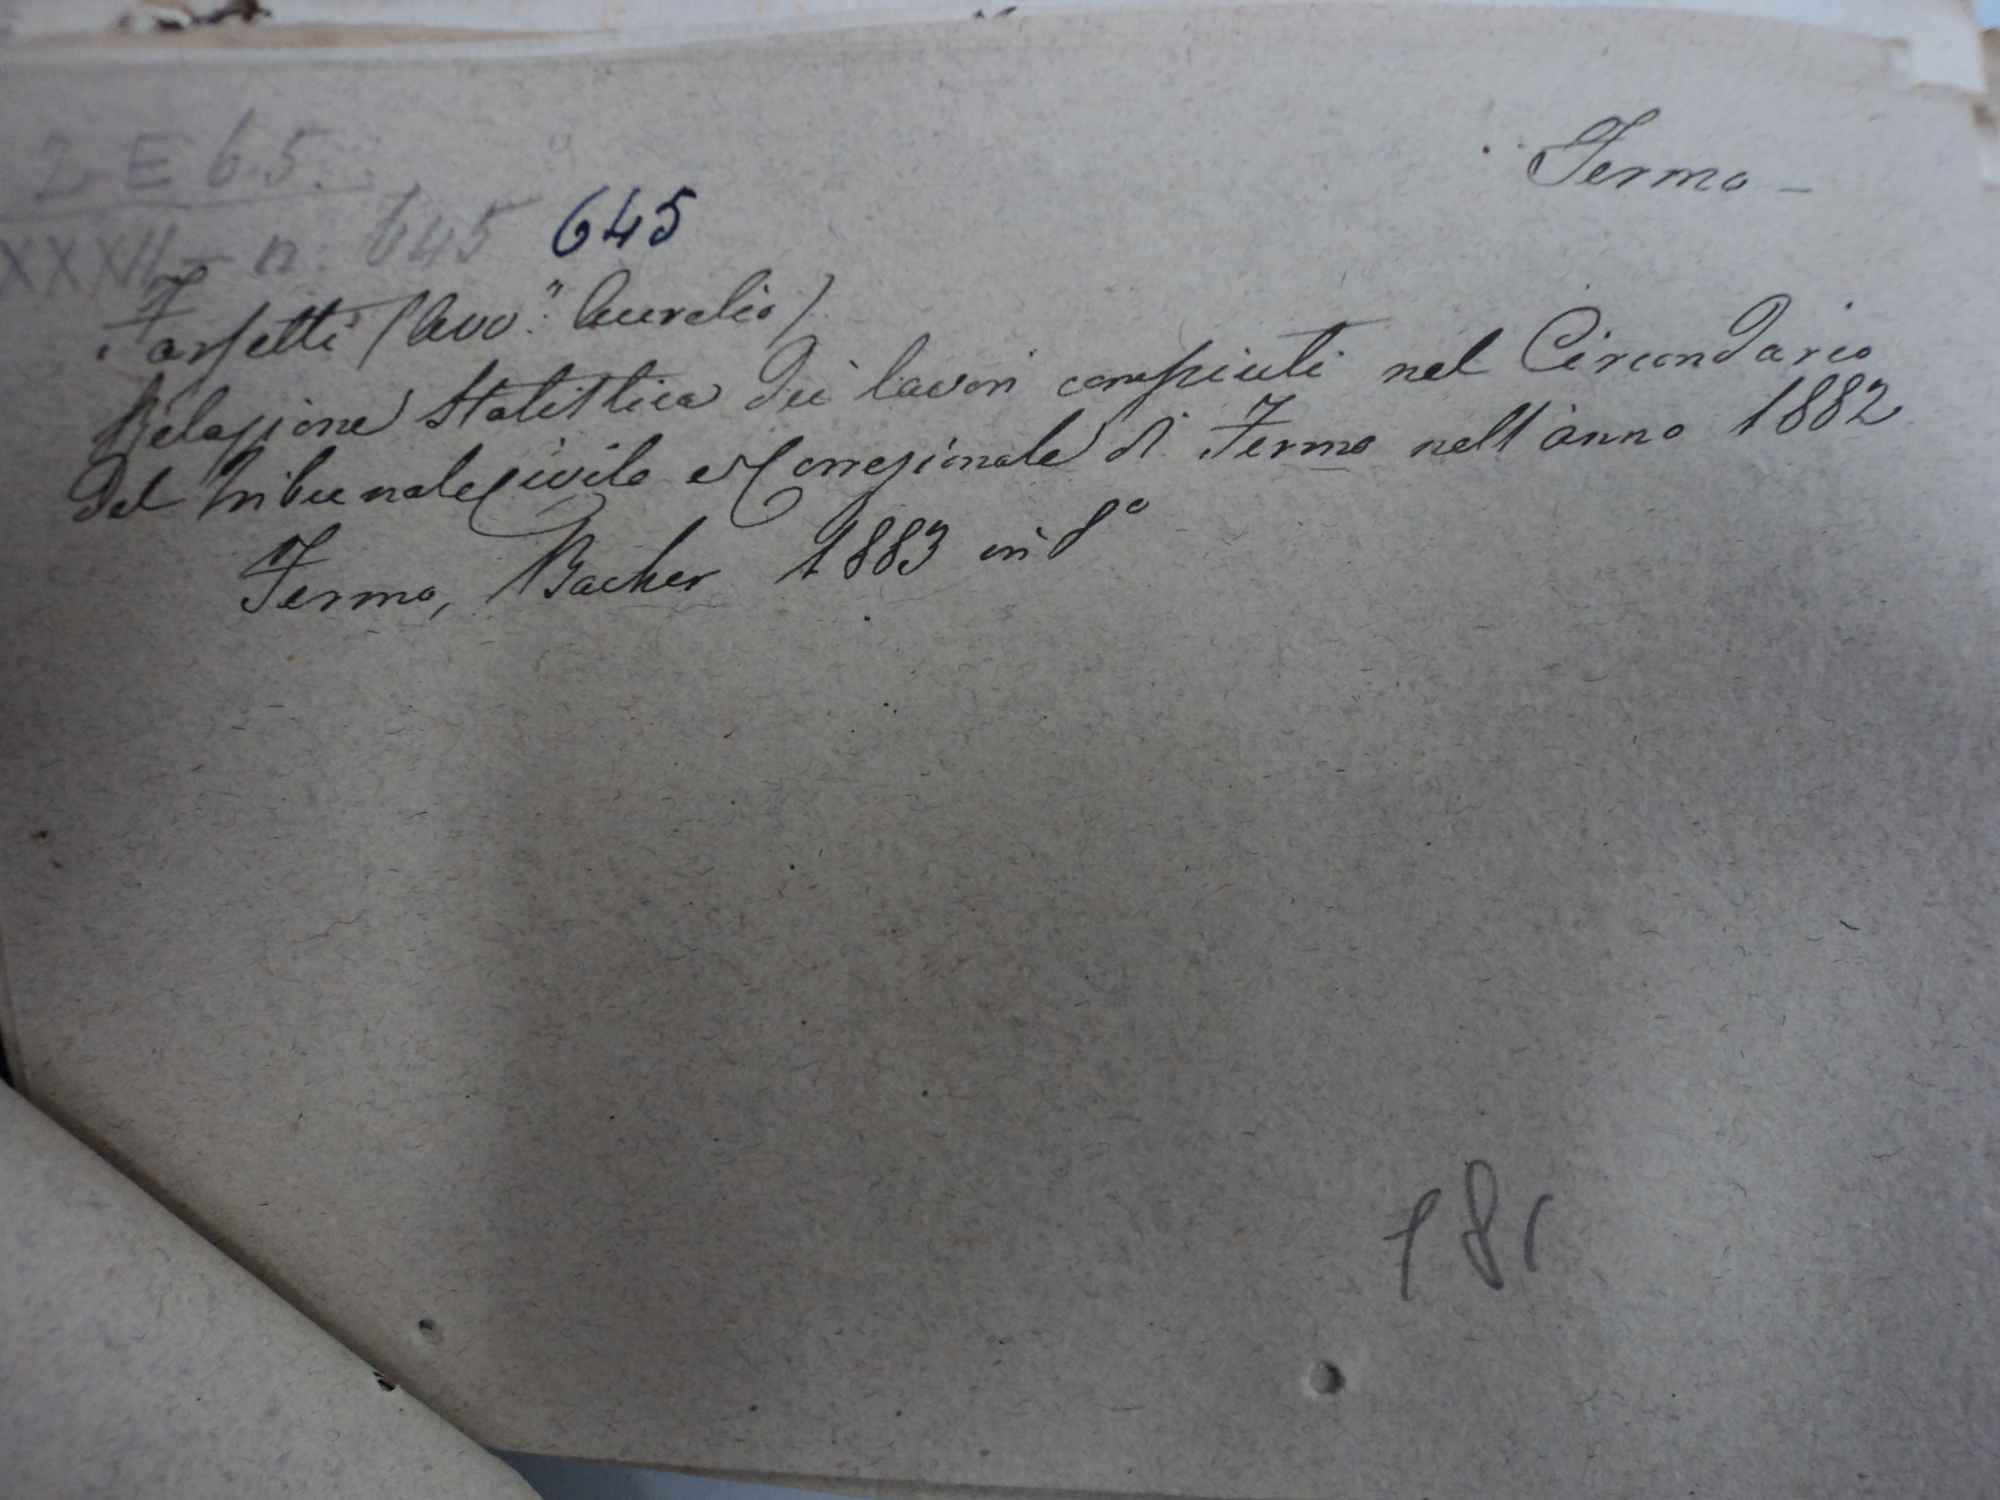 Fermo -
2 E 6.5.
XXXII - n. 645 645
Farfetti (Avv.° Aurelio)
Relazione Statistica dei lavori compiuti nel Circondario
del Tribunale Civile e Correzionale di Fermo nell'anno 1882
Fermo, Bacher 1883 in 8°
181